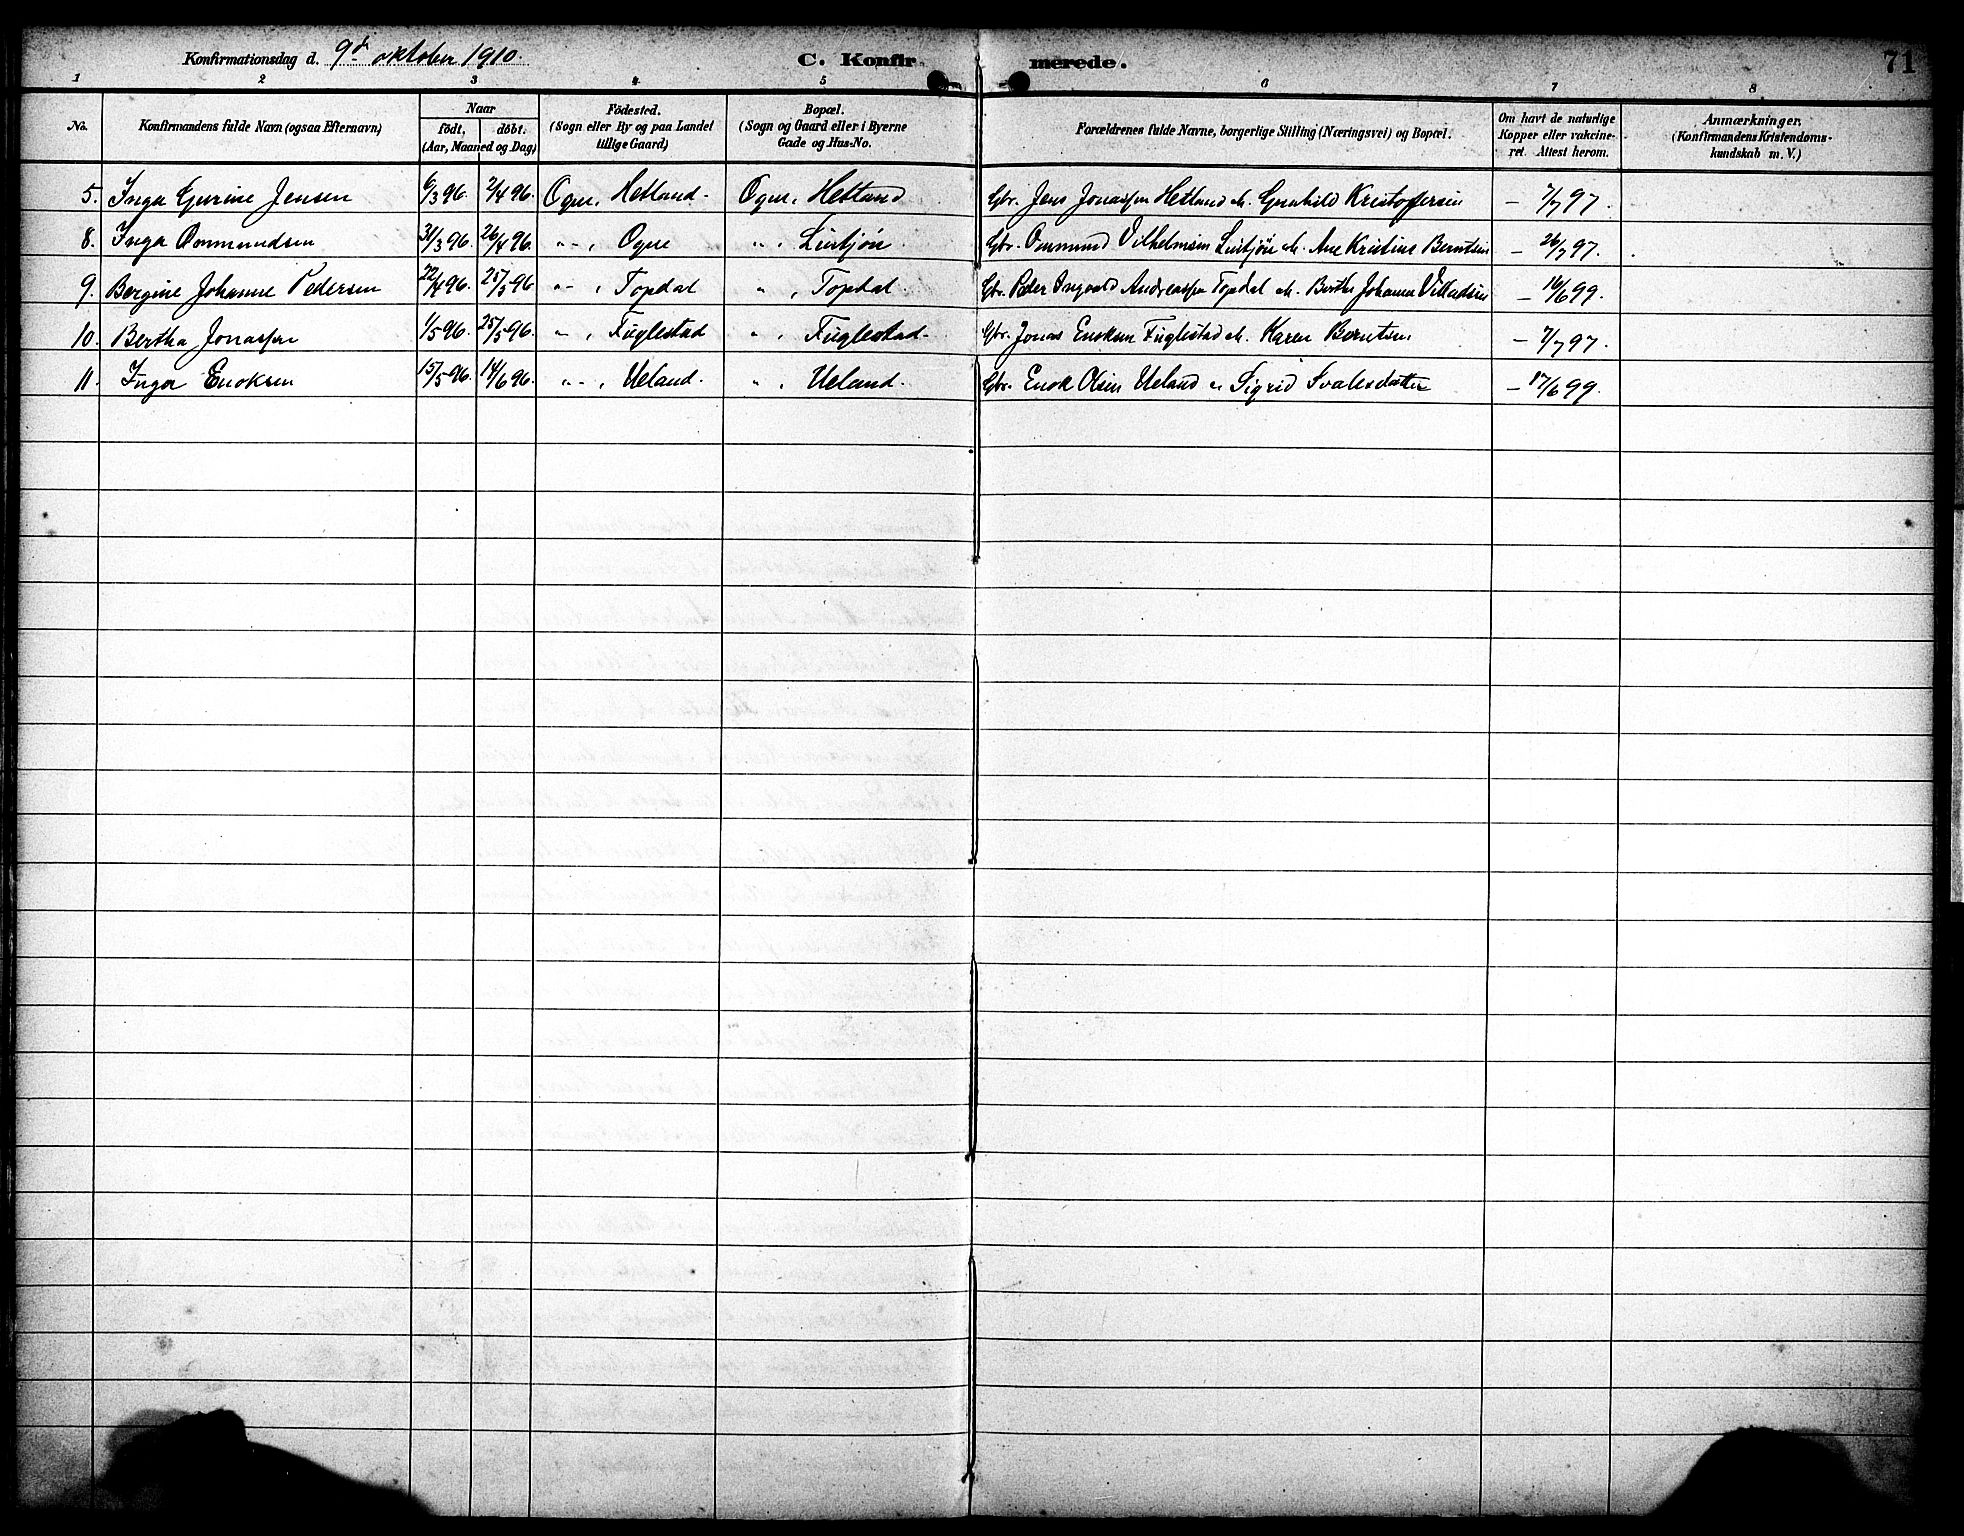 Konfirmationsdag d. 9de oktober 1910. C. Konfirmerede. 71
1 2 3 4 5 6 7 8
No. Konfirmandens fulde Navn (ogsaa Efternavn) Naar födt, döbt. (Aar, Maaned og Dag) Födested. (Sogn eller By og paa Landet tillige Gaard) Bopæl. (Sogn og Gaard eller i Byerne Gade og Hus-No. Forældrenes fulde Navne, borgerlige Stilling (Næringsvei) og Bopæl. Om havt de naturlige Kopper eller vakcineret. Attest herom. Anmærkninger. (Konfirmandens Kristendomskundskab m. V.)
5. Inga Gurine Jensen 6/3 96. 7/4 96. Ogne, Hetland. Ogne, Hetland Gbr. Jens Jonassen Hetland o. Gunhild Kristoffersen — 7/7 97.
8. Inga Ommundsen 31/3 96. 26/4 96. " " , Ogne " , Liutjön. Gbr. Ommund Vilhelmsen Liutjön o. Ane Kristine Berntsen — 26/7 97.
9. Bergine Johanne Pedersen 22/4 96. 25/5 96 " " , Topdal " , Topdal. Gbr. Peder Ingvald Andreassen Topdal o. Berthe Johanna Villadsen — 16/6 99.
10. Bertha Jonassen 1/5 96. 25/5 96. " , Fuglestad " , Fuglestad. Gbr. Jonas Enoksen Fuglestad o. Karen Berntsen — 7/7 97.
11. Inga Enoksen 15/5 96. 14/6 96. " " , Ueland. " , Ueland. Gbr. Enok Olsen Ueland o Sigrid Svalesdatter — 17/6 99.